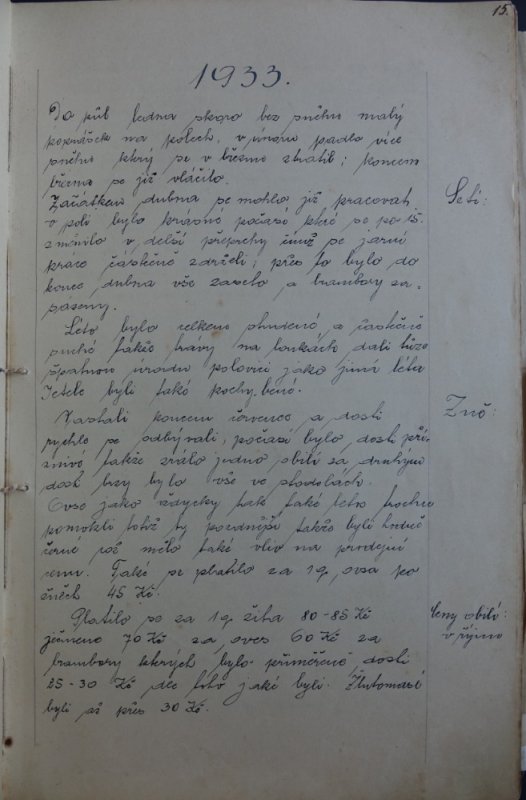 15.
1933.
Do půl ledna skoro bez sněhu malý
poprášek na polech, v únoru padlo více
sněhu který se v březnu ztratil; koncem
března se již vláčilo.
Začátkem dubna se mohlo již pracovati
v poli bylo krásné počasí které se po 15
změnilo v delší přeprchy čímž se jarní
práce částečně zdrželi; přes to bylo do
konce dubna vše zaseto a brambory za-
sazeny.
Seti:
Léto bylo celkem studené a částečně
suché takže trávy na loukách dali
špatnou úrodu polovici jako jiná léta
Jetele byli také pochybené.
Nastali koncem července a dosti
rychle se odbývali, počasí bylo dosti příz-
nivé takže zrálo jedno obilí za druhým
dosti brzy bylo vše ve stodolách.
Žně:
Ovse jako vždycky tak také letos trochu
pomokli totiž ty pozdnější takže byli hodně
černé což mělo také vliv na prodejní
cenu. Také se platilo za 1 q. ovsa po
žních 45 Kč.
Platilo se za 1 q. žita 80-85 Kč
ječmene 70 Kč za oves 60 Kč za
brambory kterých bylo přiměřeně dosti
25-30 Kč dle toho jaké byli. Žlutomasé
byli až přes 30 Kč.
Ceny obilí:
v říjnu